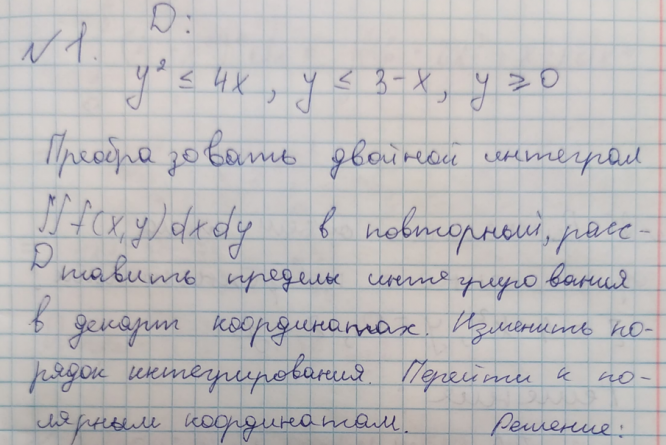 D:
№1.
y² ≤ 4x, y ≤ 3-x, y ≥ 0
Преобразовать двойной интеграл
∬f(x,y)dxdy в повторный, расс-
D тавить пределы интегрирования
в декарт координатах. Изменить по-
рядок интегрирования. Перейти к по-
лярным координатам. Решение: